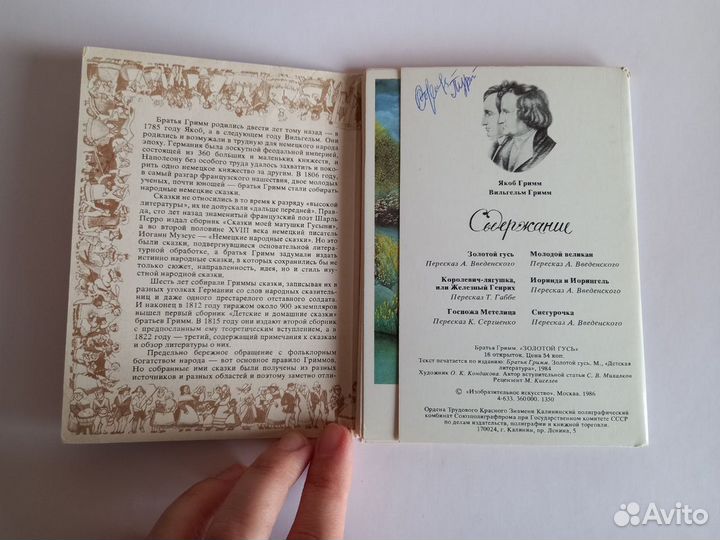 Братья Гримм родились двести лет тому назад — в
1785 году Якоб, а в следующем году Вильгельм. Они
родились и возмужали в трудную для немецкого народа
эпоху. Германия была лоскутной феодальной империей,
состоящей из 360 больших и маленьких княжеств, и
Наполеону без особого труда удалось захватить и поко-
рить одно немецкое княжество за другим. В 1806 году,
в самый разгар французского нашествия, двое молодых
ученых, почти юношей — братья Гримм стали собирать
народные немецкие сказки.
Сказки не относились в то время к разряду «высокой
литературы», их не допускали «дальше передней». Прав-
да, сто лет назад знаменитый французский поэт Шарль
Перро издал сборник «Сказки моей матушки Гусыни»,
а во второй половине XVIII века немецкий писатель
Иоганн Музеус — «Немецкие народные сказки». Но это
были сказки, подвергнувшиеся основательной литера-
турной обработке, а братья Гримм задумали издать
истинно народные сказки, в которых сохранились бы не
только сюжет, направленность, идея, но и стиль изу-
стной народной сказки.
Шесть лет собирали Гриммы сказки, записывая их в
разных уголках Германии со слов народных сказитель-
ниц и даже одного престарелого отставного солдата.
И наконец в 1812 году тиражом около 900 экземпляров
вышел первый сборник «Детские и домашние сказки»
братьев Гримм. В 1815 году они издают второй сборник
с предпосланным ему теоретическим вступлением, а в
1822 — третий, содержащий примечания к сказкам
и обзор литературы о них.
Предельно бережное обращение с фольклорным
богатством народа — вот основное правило Гриммов.
Но собранные ими сказки были получены из разных
источников и разных областей и поэтому заметно отли-
Якоб Гримм
Вильгельм Гримм
Содержание
Золотой гусь
Пересказ А. Введенского
Королевич-лягушка,
или Железный Генрих
Пересказ Т. Габбе
Госпожа Метелица
Пересказ К. Сергиенко
Молодой великан
Пересказ А. Введенского
Иоринда и Иорингель
Пересказ А. Введенского
Снегурочка
Пересказ А. Введенского
Братья Гримм. «ЗОЛОТОЙ ГУСЬ»
16 открыток. Цена 54 коп.
Текст печатается по изданию: Братья Гримм. Золотой гусь. М., «Детская
литература», 1984
Художник О. К. Кондакова. Автор вступительной статьи С. В. Михалков
Рецензент М. Киселев
© «Изобразительное искусство». Москва. 1986
4-633. 360000. 1350
Ордена Трудового Красного Знамени Калининский полиграфический
комбинат Союзполиграфпрома при Государственном комитете СССР
по делам издательств, полиграфии и книжной торговли.
170024, г. Калинин, пр. Ленина, 5
Avito